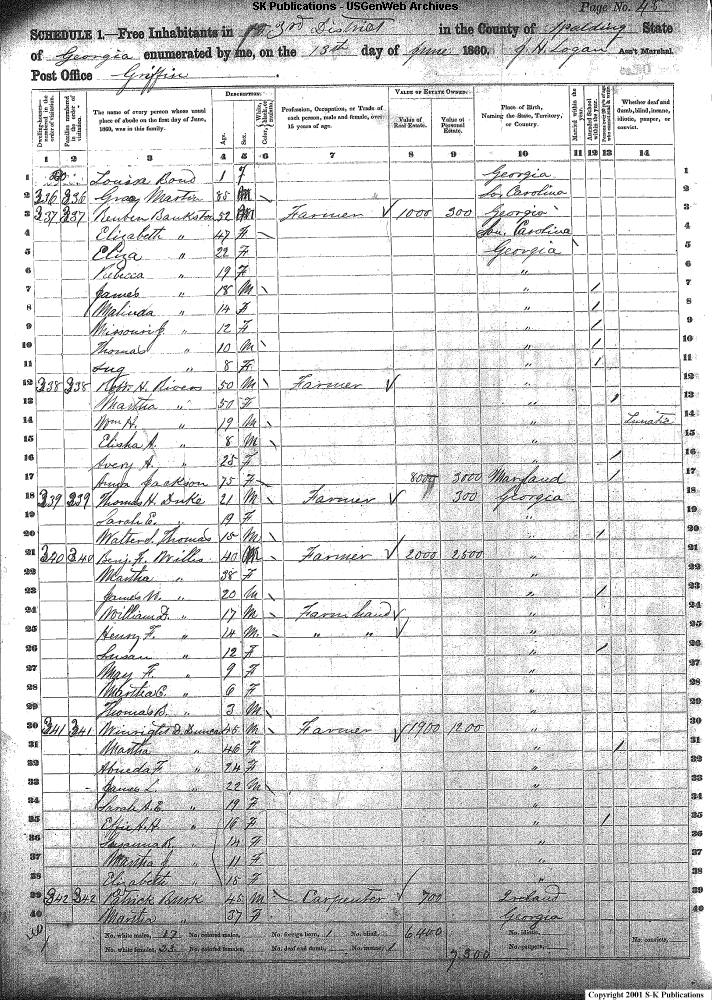 SK Publications - USGenWeb Archives
Page No. 45
SCHEDULE 1.—Free Inhabitants in 3rd District in the County of Spalding State
of Georgia enumerated by me, on the 13th day of June 1860. J. H. Logan Ass't Marshal.
Post Office Griffin
Dwelling-houses—numbered in the order of visitation.
Families numbered in the order of visitation.
The name of every person whose usual place of abode on the first day of June, 1860, was in this family.
DESCRIPTION.
Age.
Sex.
Profession, Occupation, or Trade of each person, male and female, over 15 years of age.
VALUE OF ESTATE OWNED.
Value of Real Estate.
Value of Personal Estate.
Place of Birth, Naming the State, Territory, or Country.
Married within the year.
Attended School within the year.
Whether deaf and dumb, blind, insane, idiotic, pauper, or convict.
1 2 3 4 5 6 7 8 9 10 11 12 13 14
1 Louisa Bond 1 F Georgia 1
2 336 336 Martin 85 So. Carolina 2
3 337 337 Reuben Bankston 52 M Farmer 1000 300 Georgia 3
4 Elizabeth " 47 F Sou. Carolina 4
5 Eliza " 22 F Georgia 5
6 Rebecca " 19 F " 6
7 James " 18 M " / 7
8 Malinda " 14 F " / 8
9 Missouri " 12 F " / 9
10 Thomas " 10 M " / 10
11 " 8 F " / 11
12 338 338 H. Rivers 50 M Farmer " 12
13 Martha " 50 F " / 13
14 Wm H. " 19 M " Lunatic 14
15 Elisha A. " 8 M " 15
16 Avery A. " 25 F " / 16
17 Jackson 75 F 8000 3000 Maryland / 17
18 339 339 Thomas H. Duke 21 M Farmer 300 Georgia 18
19 Sarah E. " 19 F " 19
20 Thomas 15 M " / 20
21 340 340 Benj. F. Willis 40 M Farmer 2000 2500 " 21
22 Martha " 38 F " 22
23 James W. " 20 M " / 23
24 William D. " 17 M Farm hand " 24
25 Henry F. " 14 M " " " 25
26 Susan " 12 F " / 26
27 May F. " 9 F " 27
28 Martha E. " 6 F " 28
29 Thomas B. " 3 M " 29
30 341 341 Winright D. Duncan 45 M Farmer 1900 1200 " 30
31 Martha " 46 F " / 31
32 F. " 24 F " 32
33 James L. " 22 M " 33
34 Sarah A. E. " 19 F " 34
35 Effie A. H. " 16 F " / 35
36 Susanna R. " 14 F " 36
37 Martha J. " 11 F " 37
38 Elizabeth " 15 F " 38
39 342 342 Patrick Burk 45 M Carpenter 700 Ireland 39
40 Martha " 37 F Georgia 40
No. white males, 17 No. colored males, No. foreign born, 1 No. blind, 6,400 No. idiotic, No. convicts,
No. white females, 23 No. colored females, No. deaf and dumb, No. insane, 1 7,300 No. paupers,
Copyright 2001 S-K Publications